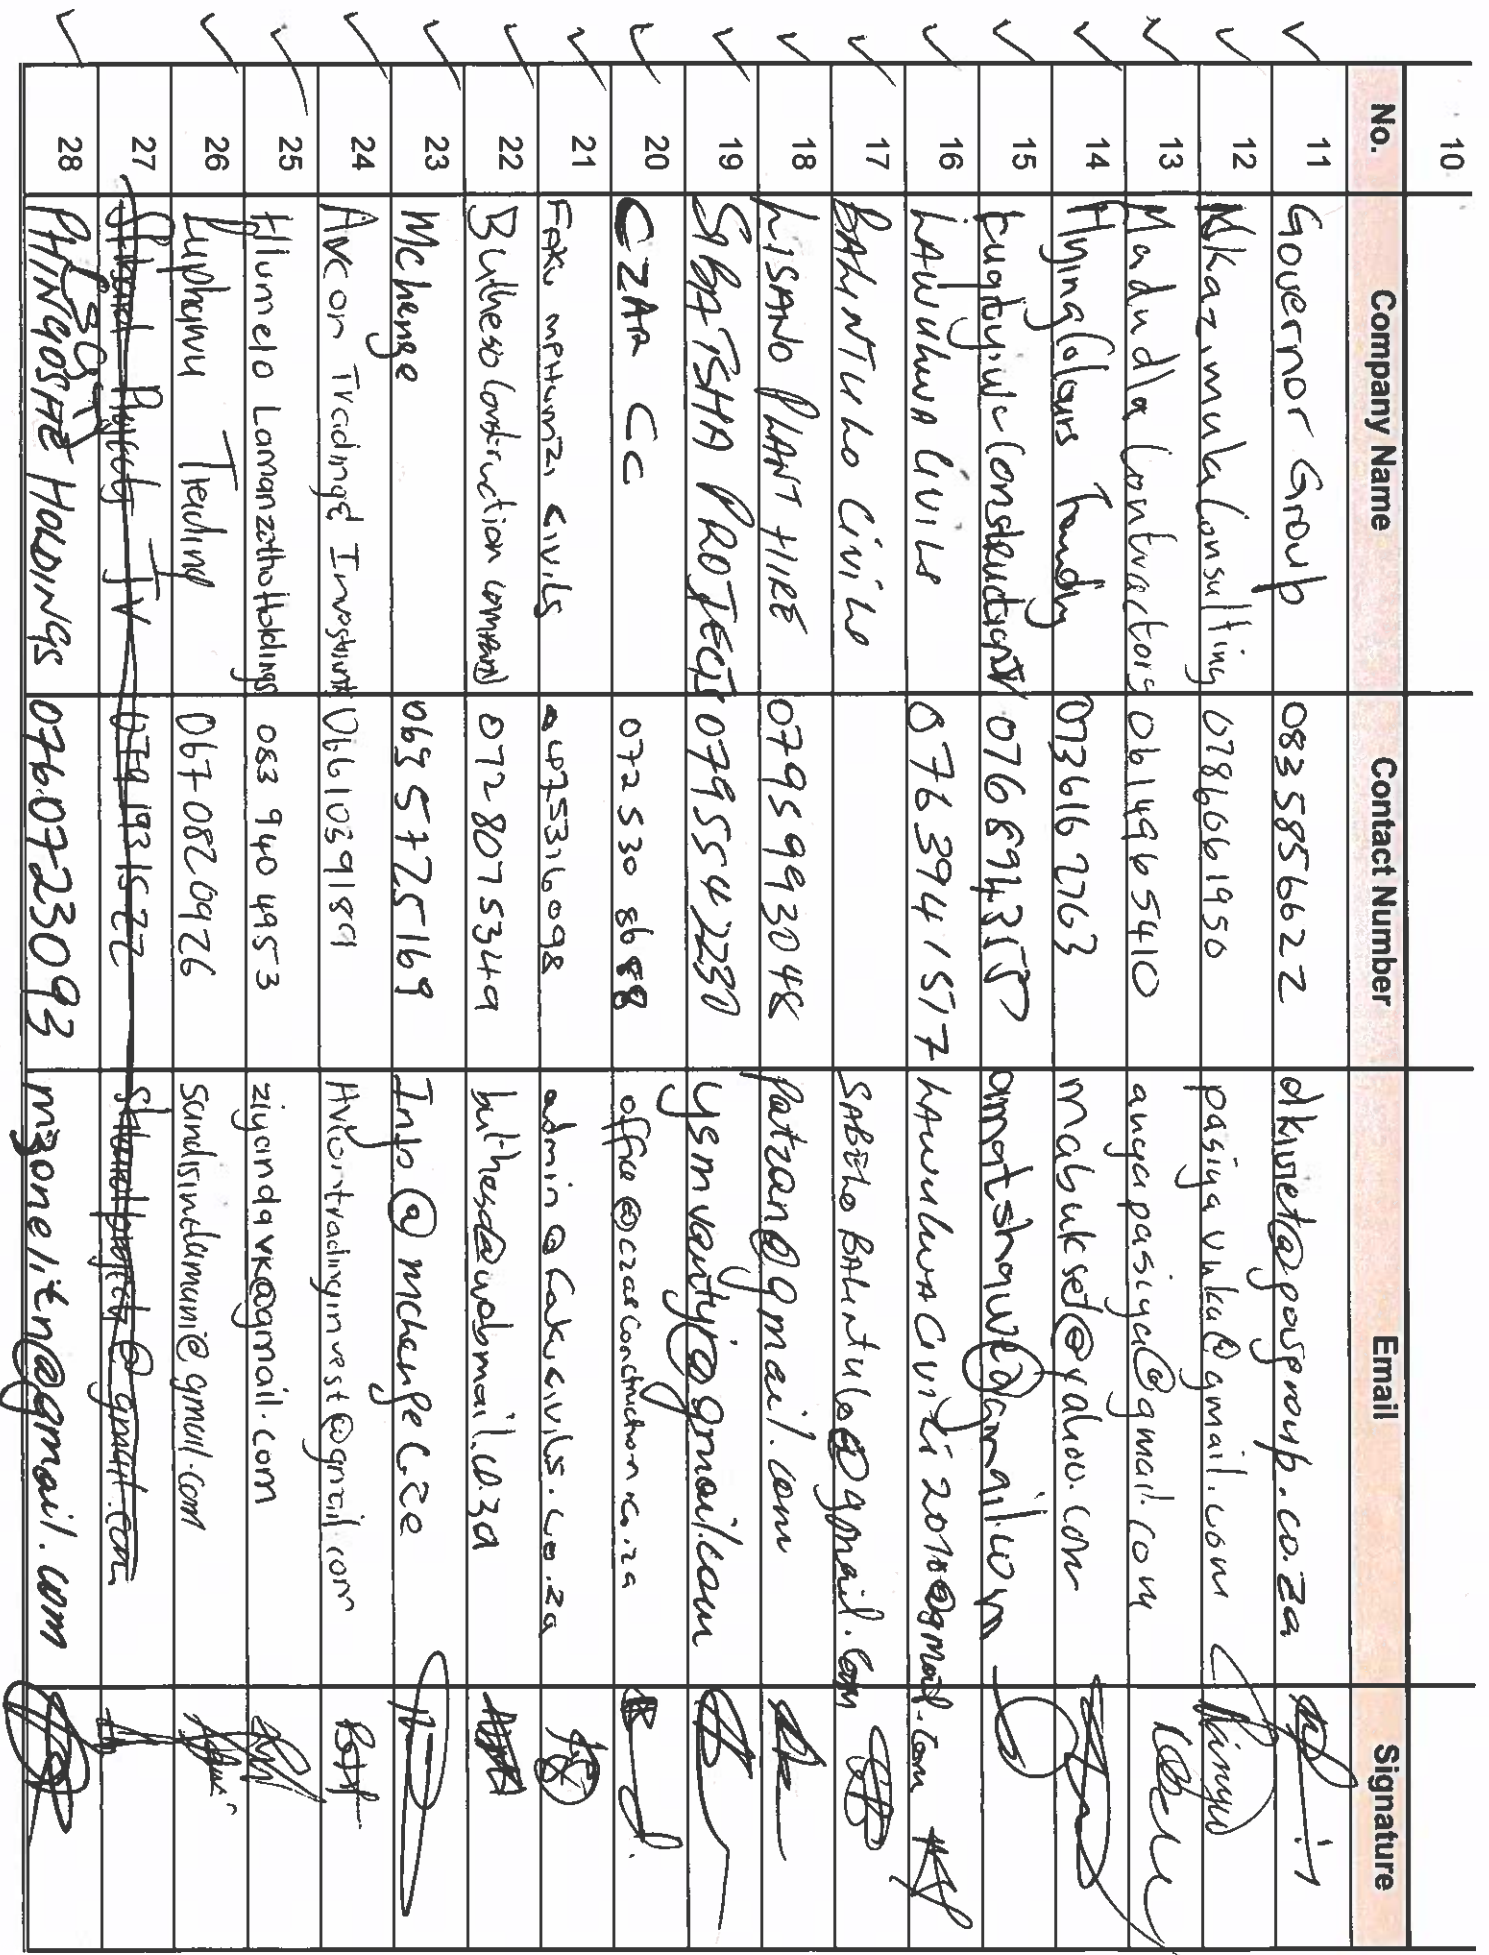 10
No. Company Name Contact Number Email Signature
11 Governor Group 0835856622 dkiviet@govgroup.co.za
12 Mkazimula Consulting 0786061950 pasiyavuka@gmail.com
13 Madudla Contractors 0614965410 anyapasiya@gmail.com
14 Flying Colours 0736162763 mabukset@yahoo.com
15 Construction 0768943155 amatshawe@gmail.com
16 LAWULWA CIVILS 0763941517 LAWULWACIVILS2010@gmail.com
17 BALINTULO CIVILS SABELO BALINTULO@gmail.com
18 LISANO PLANT HIRE 0795993048 Patzan@gmail.com
19 SIBATSHA PROJECTS 0795542230 ysmventy@gmail.com
20 CZAR CC 072 530 8688 office@czarconstruction.co.za
21 FAKU MPHUMZI CIVILS 0475316098 admin@fakucivils.co.za
22 Butheso Construction company 0728075349 butheso@webmail.co.za
23 Mchenge 0695725169 Info@mchenge.co.za
24 Avcon Trading & Investment 0661039189 Avcontradinginvest@gmail.com
25 Hlumelo Lamanzotho Holdings 083 940 4953 ziyandavk@gmail.com
26 Luphawu Trading 067 082 0926 sandisintlamani@gmail.com
27 JV 079 193 1522 @gmail.com
28 PHINGOSHE HOLDINGS 076 072 3093 mzonelitn@gmail.com